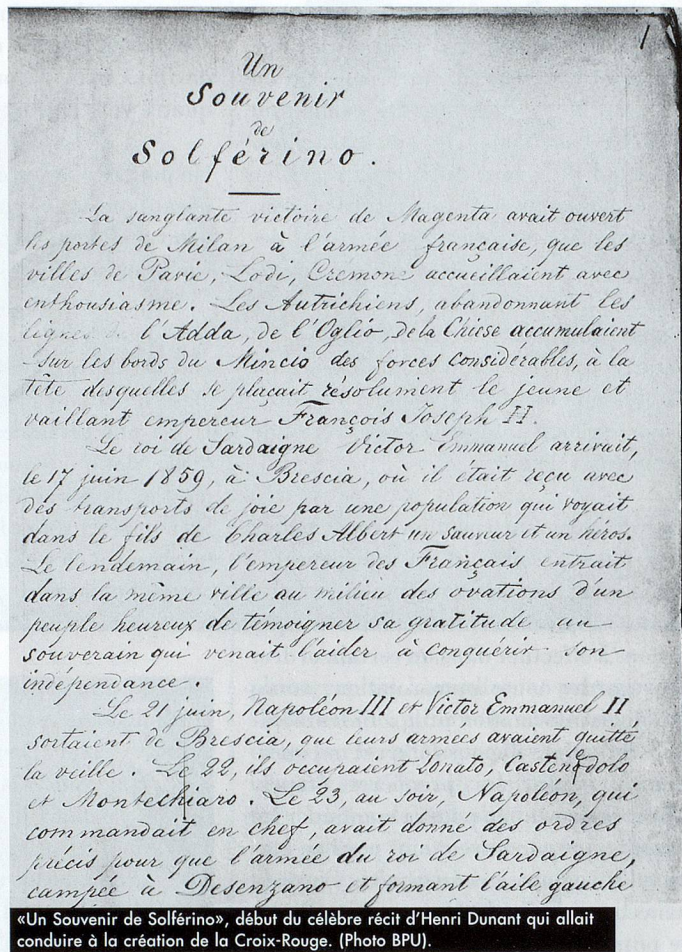 1
Un
Souvenir
de
Solférino.
La sanglante victoire de Magenta avait ouvert
les portes de Milan à l'armée française, que les
villes de Pavie, Lodi, Cremone accueillaient avec
enthousiasme. Les Autrichiens, abandonnant les
lignes de l'Adda, de l'Oglio, de la Chiese accumulaient
sur les bords du Mincio des forces considérables, à la
tête desquelles se plaçait résolument le jeune et
vaillant empereur François Joseph II.
Le roi de Sardaigne Victor Emmanuel arrivait,
le 17 juin 1859, à Brescia, où il était reçu avec
des transports de joie par une population qui voyait
dans le fils de Charles Albert un sauveur et un héros.
Le lendemain, l'empereur des Français entrait
dans la même ville au milieu des ovations d'un
peuple heureux de témoigner sa gratitude au
souverain qui venait l'aider à conquérir son
indépendance.
Le 21 juin, Napoléon III et Victor Emmanuel II
sortaient de Brescia, que leurs armées avaient quitté
la veille. Le 22, ils occupaient Lonato, Castenedolo
et Montechiaro. Le 23, au soir, Napoléon, qui
commandait en chef, avait donné des ordres
précis pour que l'armée du roi de Sardaigne,
campée à Desenzano et formant l'aile gauche
«Un Souvenir de Solférino», début du célèbre récit d'Henri Dunant qui allait
conduire à la création de la Croix-Rouge. (Photo BPU).